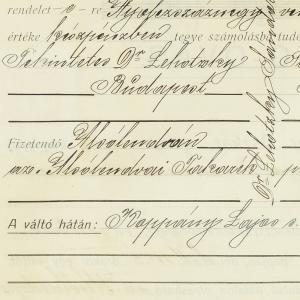 rendelet-e- re Négyszázhuszonegy
értéke készpénzben tegye számolásba
Tekintetes Dr Lehotzky
Budapest
Fizetendő Alsólendván
az Alsólendvai Takarék
A váltó hátán: Koppány Lajos s.
Dr Lehotzky Sándor